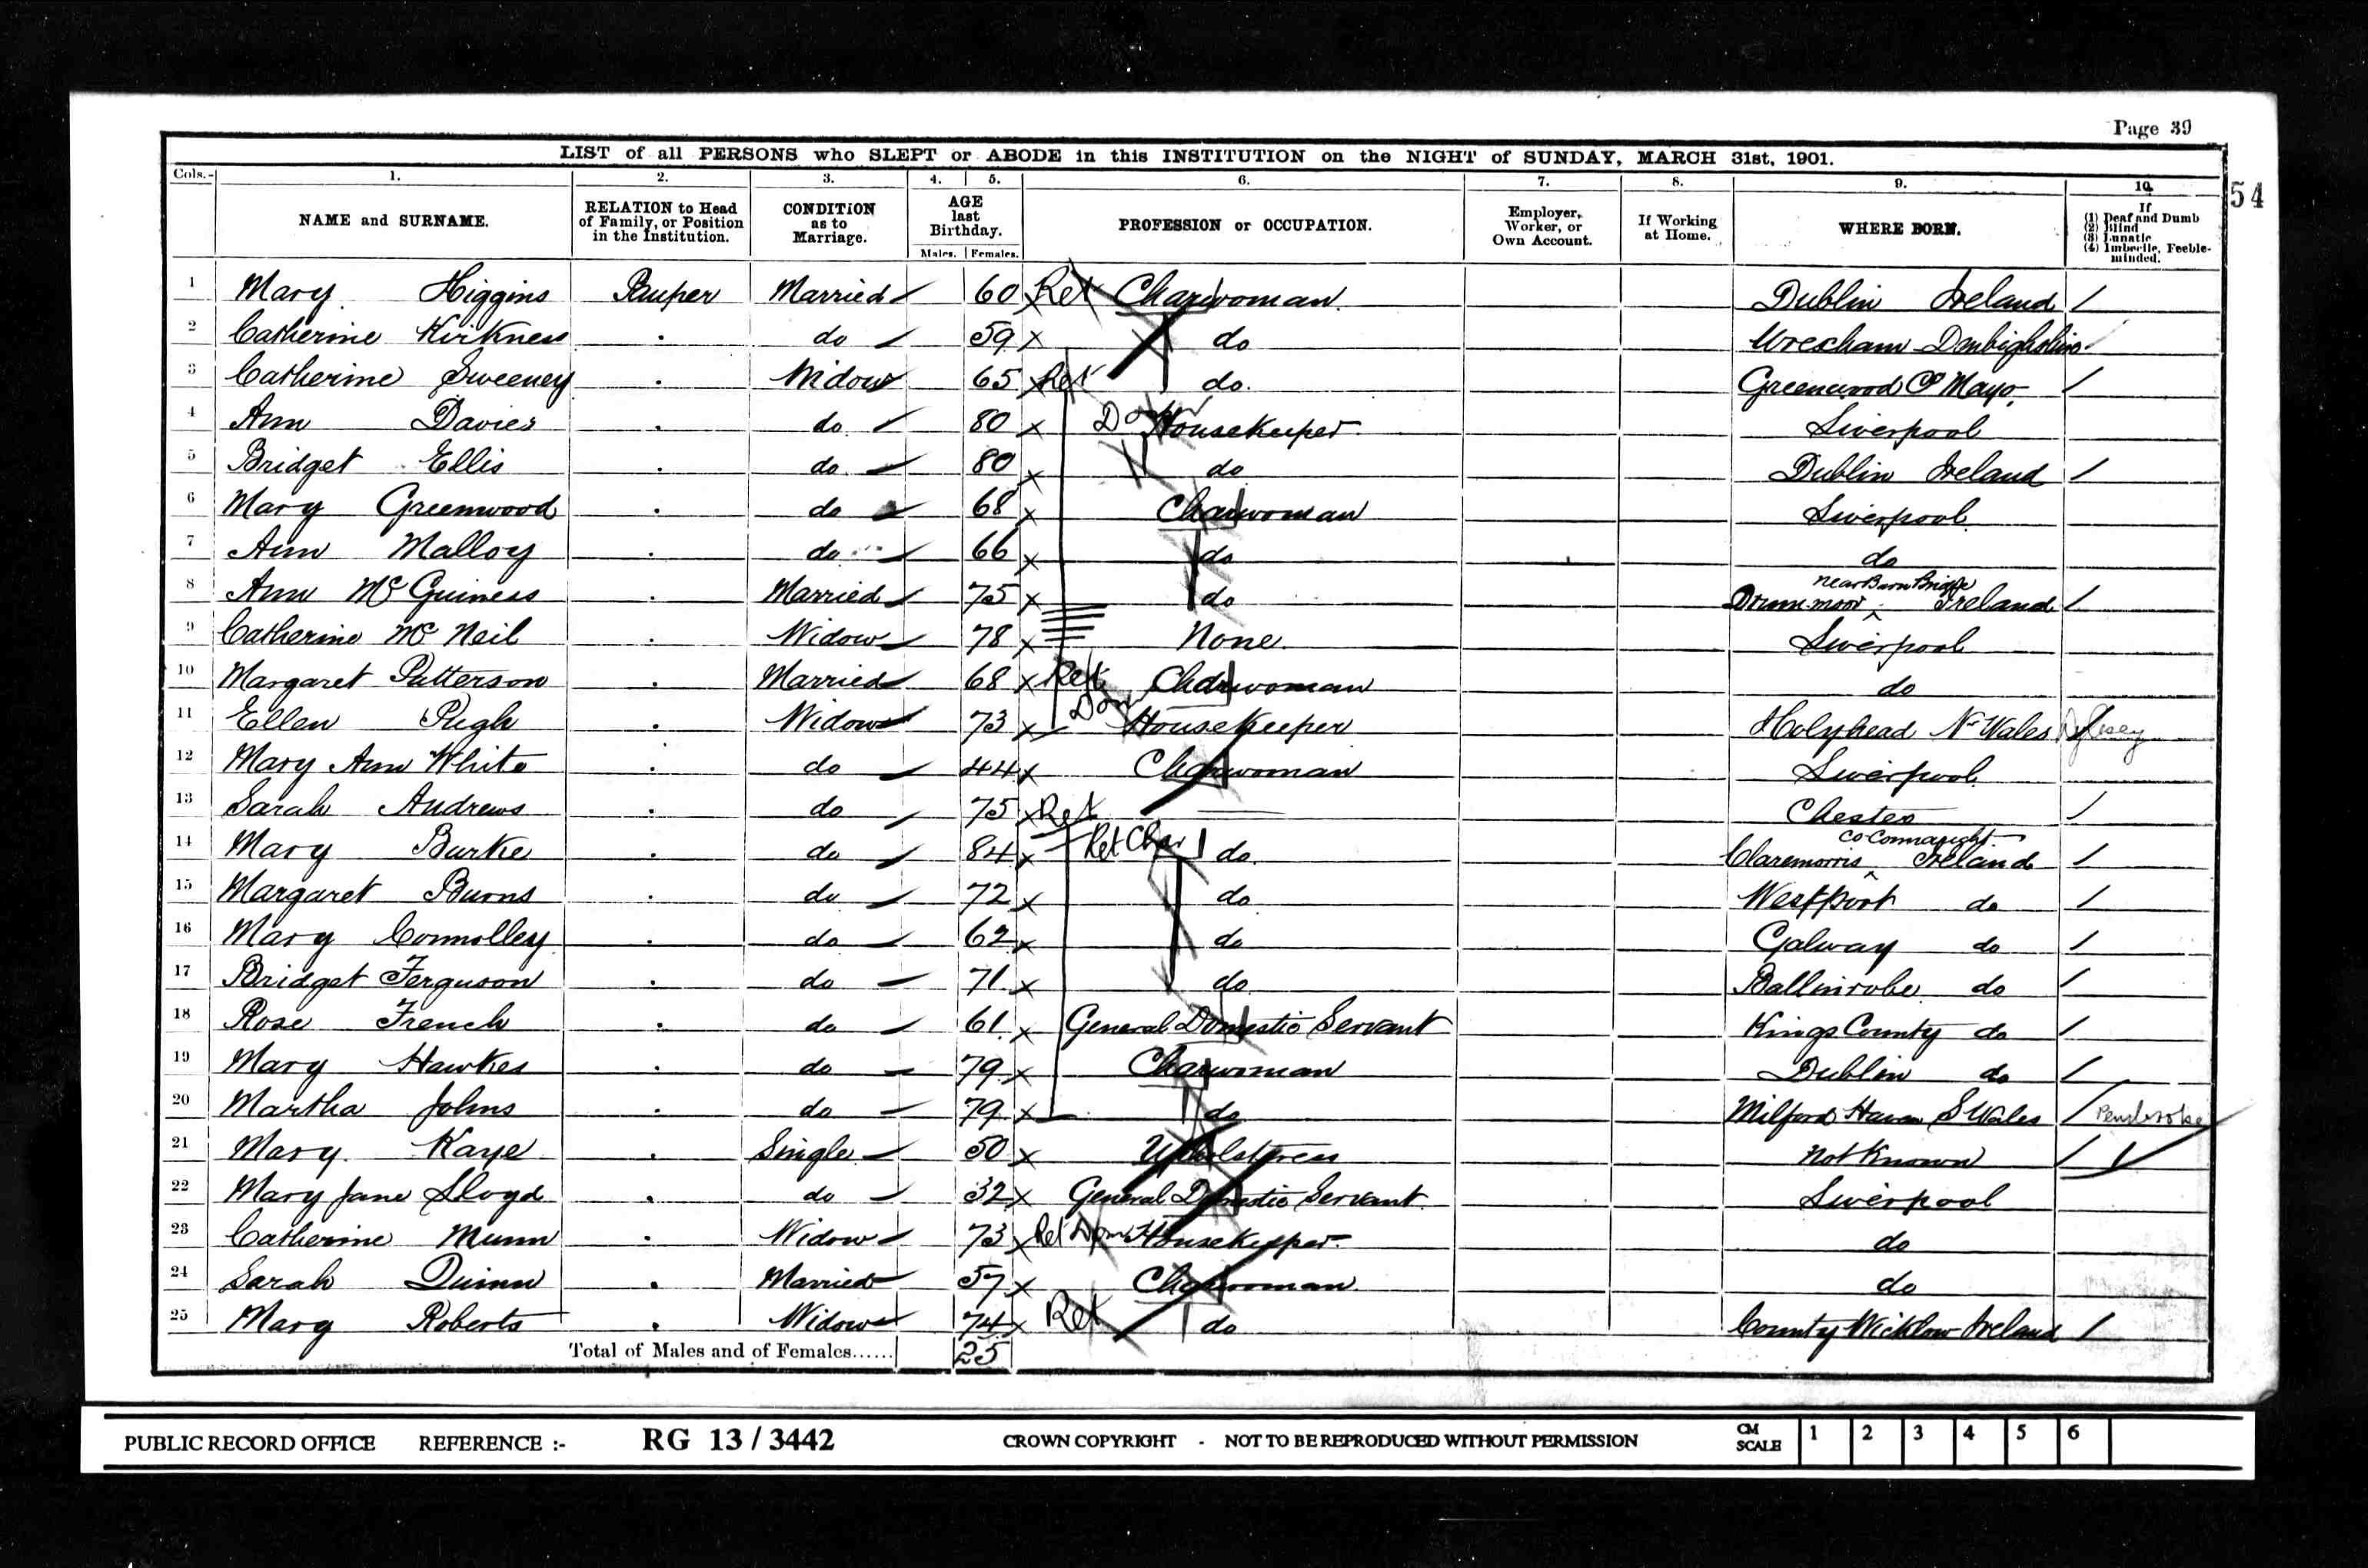 Page 39
LIST of all PERSONS who SLEPT or ABODE in this INSTITUTION on the NIGHT of SUNDAY, MARCH 31st, 1901.
54
Cols.- 1. 2. 3. 4. 5. 6. 7. 8. 9. 10.
NAME and SURNAME. RELATION to Head of Family, or Position in the Institution. CONDITION as to Marriage. AGE last Birthday. Males. Females. PROFESSION or OCCUPATION. Employer, Worker, or Own Account. If Working at Home. WHERE BORN. If (1) Deaf and Dumb (2) Blind (3) Lunatic (4) Imbecile, Feeble-minded.
1 Mary Higgins Pauper Married 60 x Ret Charwoman. Dublin Ireland /
2 Catherine Kirkness . do 59 x do Wrexham Denbighshire
3 Catherine Sweeney . Widow 65 x Ret do. Greenwood Co Mayo. /
4 Ann Davies . do 80 x Do Housekeeper Liverpool
5 Bridget Ellis . do 80 x do Dublin Ireland /
6 Mary Greenwood . do 68 x Charwoman Liverpool
7 Ann Malloy . do 66 x do do
8 Ann McGuiness . Married 75 x do near Barn Bridge Drummoor Ireland /
9 Catherine McNeil . Widow 78 x None. Liverpool
10 Margaret Patterson . Married 68 x Ret Charwoman do
11 Ellen Pugh . Widow 73 x Dom Housekeeper Holyhead N. Wales
12 Mary Ann White . do 44 x Charwoman Liverpool
13 Sarah Andrews . do 75 x Ret Chester /
14 Mary Burke . do 84 x Ret Char do. Co Connaught Claremorris Ireland /
15 Margaret Burns . do 72 x do Westport do /
16 Mary Connolley . do 62 x do Galway do /
17 Bridget Ferguson . do 71 x do Ballinrobe do /
18 Rose French . do 61 x General Domestic Servant Kings County do /
19 Mary Hawkes . do 79 x Charwoman Dublin do /
20 Martha Johns . do 79 x do Milford Haven S Wales / Pembroke
21 Mary Kaye . Single 50 x Upholstress Not Known /
22 Mary Jane Lloyd . do 32 x General Domestic Servant. Liverpool
23 Catherine Munn . Widow 73 x Ret Dom Housekeeper do
24 Sarah Quinn . Married 57 x Charwoman do
25 Mary Roberts . Widow 74 x Ret do County Wicklow Ireland /
Total of Males and of Females...... 25
PUBLIC RECORD OFFICE REFERENCE :- RG 13 / 3442 CROWN COPYRIGHT - NOT TO BE REPRODUCED WITHOUT PERMISSION CM SCALE 1 2 3 4 5 6